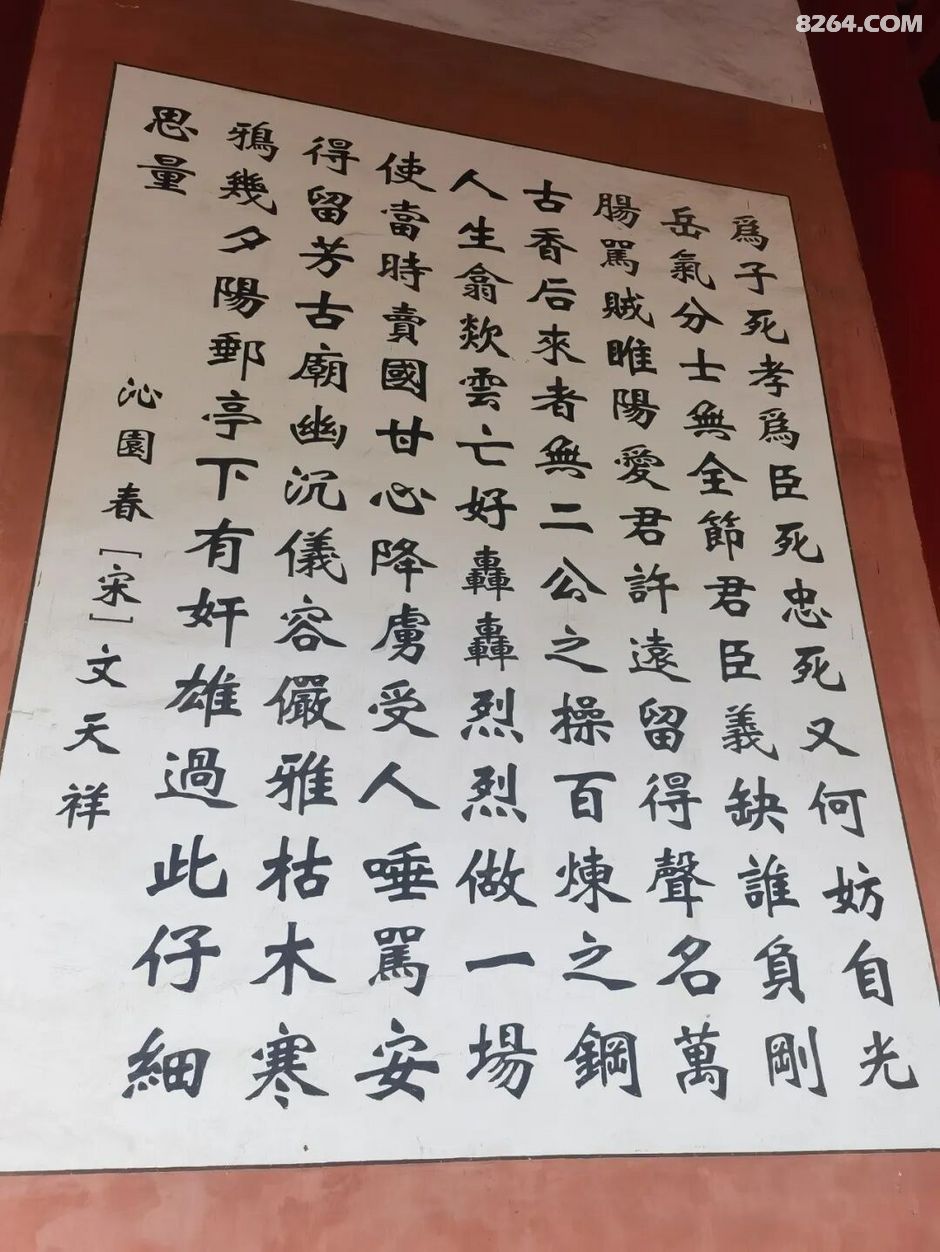 8264.COM
爲子死孝爲臣死忠死又何妨自光
岳氣分士無全節君臣義缺誰負剛
腸罵賊睢陽愛君許遠留得聲名萬
古香后來者無二公之操百煉之鋼
人生翕欻雲亡好轟轟烈烈做一場
使當時賣國甘心降虜受人唾罵安
得留芳古廟幽沉儀容儼雅枯木寒
鴉幾夕陽郵亭下有奸雄過此仔細
思量
沁園春［宋］文天祥